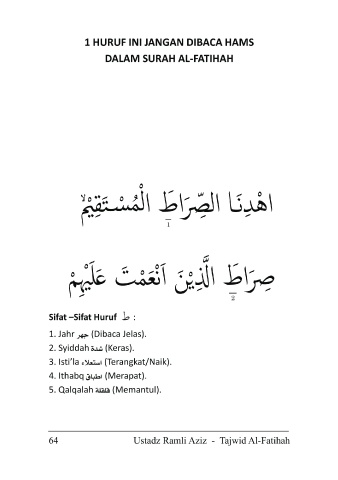 1 HURUF INI JANGAN DIBACA HAMS
DALAM SURAH AL-FATIHAH
اهْدِنَا الصِّرَاطَ الْمُسْتَقِيْمَۙ
1
صِرَاطَ الَّذِيْنَ اَنْعَمْتَ عَلَيْهِمْ
2
Sifat –Sifat Huruf ط :
1. Jahr جهر (Dibaca Jelas).
2. Syiddah شدة (Keras).
3. Isti’la استعلاء (Terangkat/Naik).
4. Ithabq اطباق (Merapat).
5. Qalqalah قلقلة (Memantul).
64 Ustadz Ramli Aziz - Tajwid Al-Fatihah